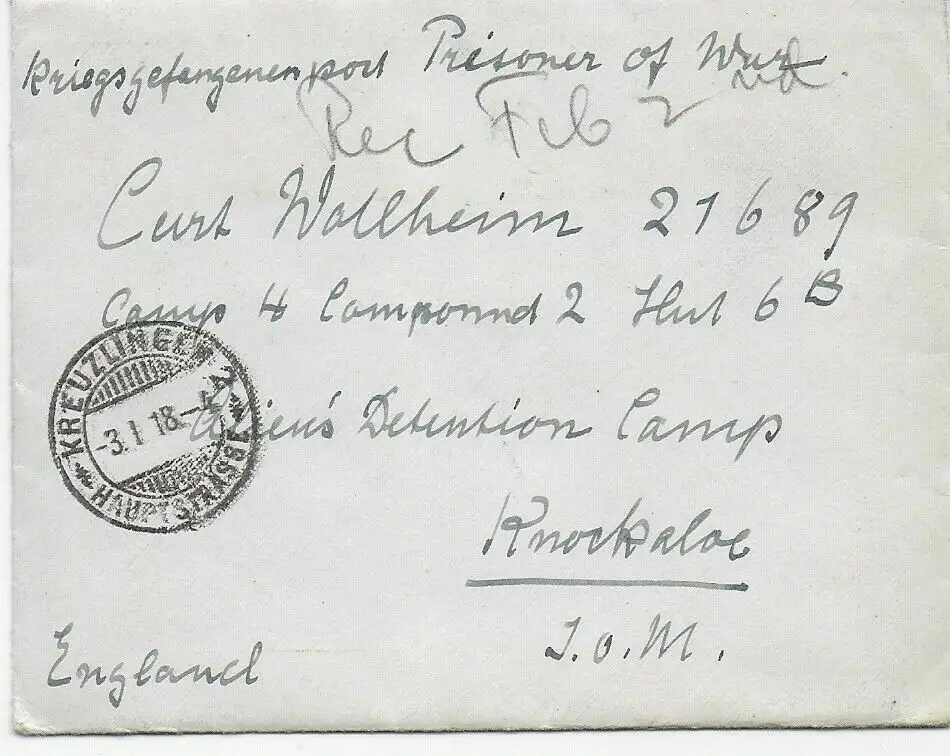 Kriegsgefangenenpost Prisoner of War.
Rec Feb 2nd
Curt Wollheim 21689
Camp 4 Compound 2 Hut 6 B
Alien's Detention Camp
Knockaloe
I.o.M.
England
KREUZLINGEN 2
-3.I.18.-4
HAUPTSTRASSE